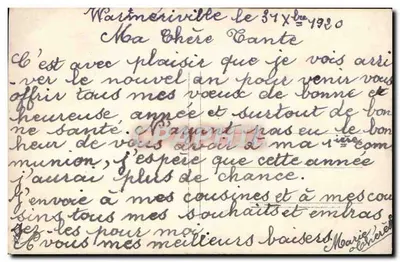 Warmériville le 31 Xbre 1920
Ma Chère Tante
C'est avec plaisir que je vois arri
ver le nouvel an pour venir vous
offrir tous mes vœux de bonne et
heureuse, année et surtout de bon
ne santé. N'ayant pas eu le bon
heur de vous avoir à ma 1ière com
munion, j'espère que cette année
j'aurai plus de chance.
J'envoie à mes cousines et à mes cou
sins tous mes souhaits et embras
sez-les pour moi.
A vous mes meilleurs baisers Marie
Thérèse